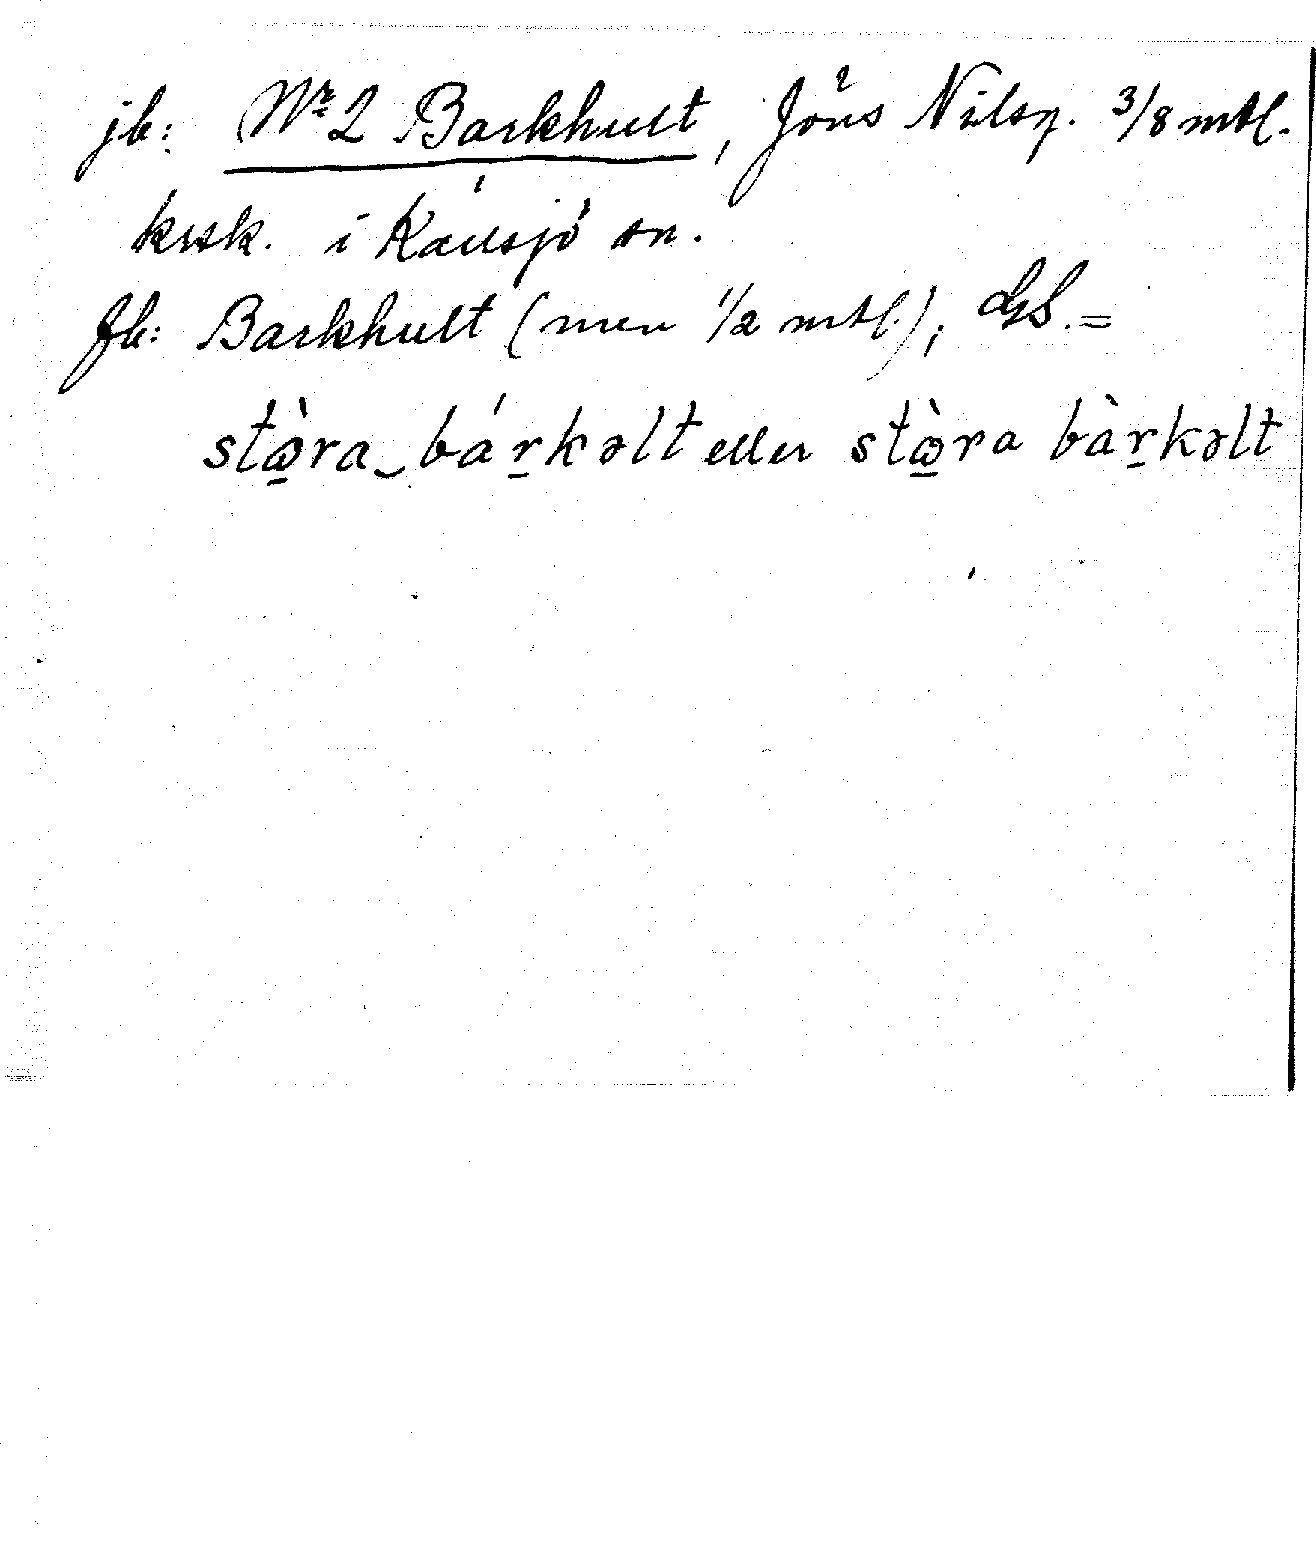 jb: Nr 2 Barkhult, Jöns Nilsz. 3/8 mtl.
krsk. i Källsjö sn.
fb: Barkhult (men 1/2 mtl.); GS. =
stò̱ra‿bár̠kəlt eller stò̱ra bàr̠kəlt